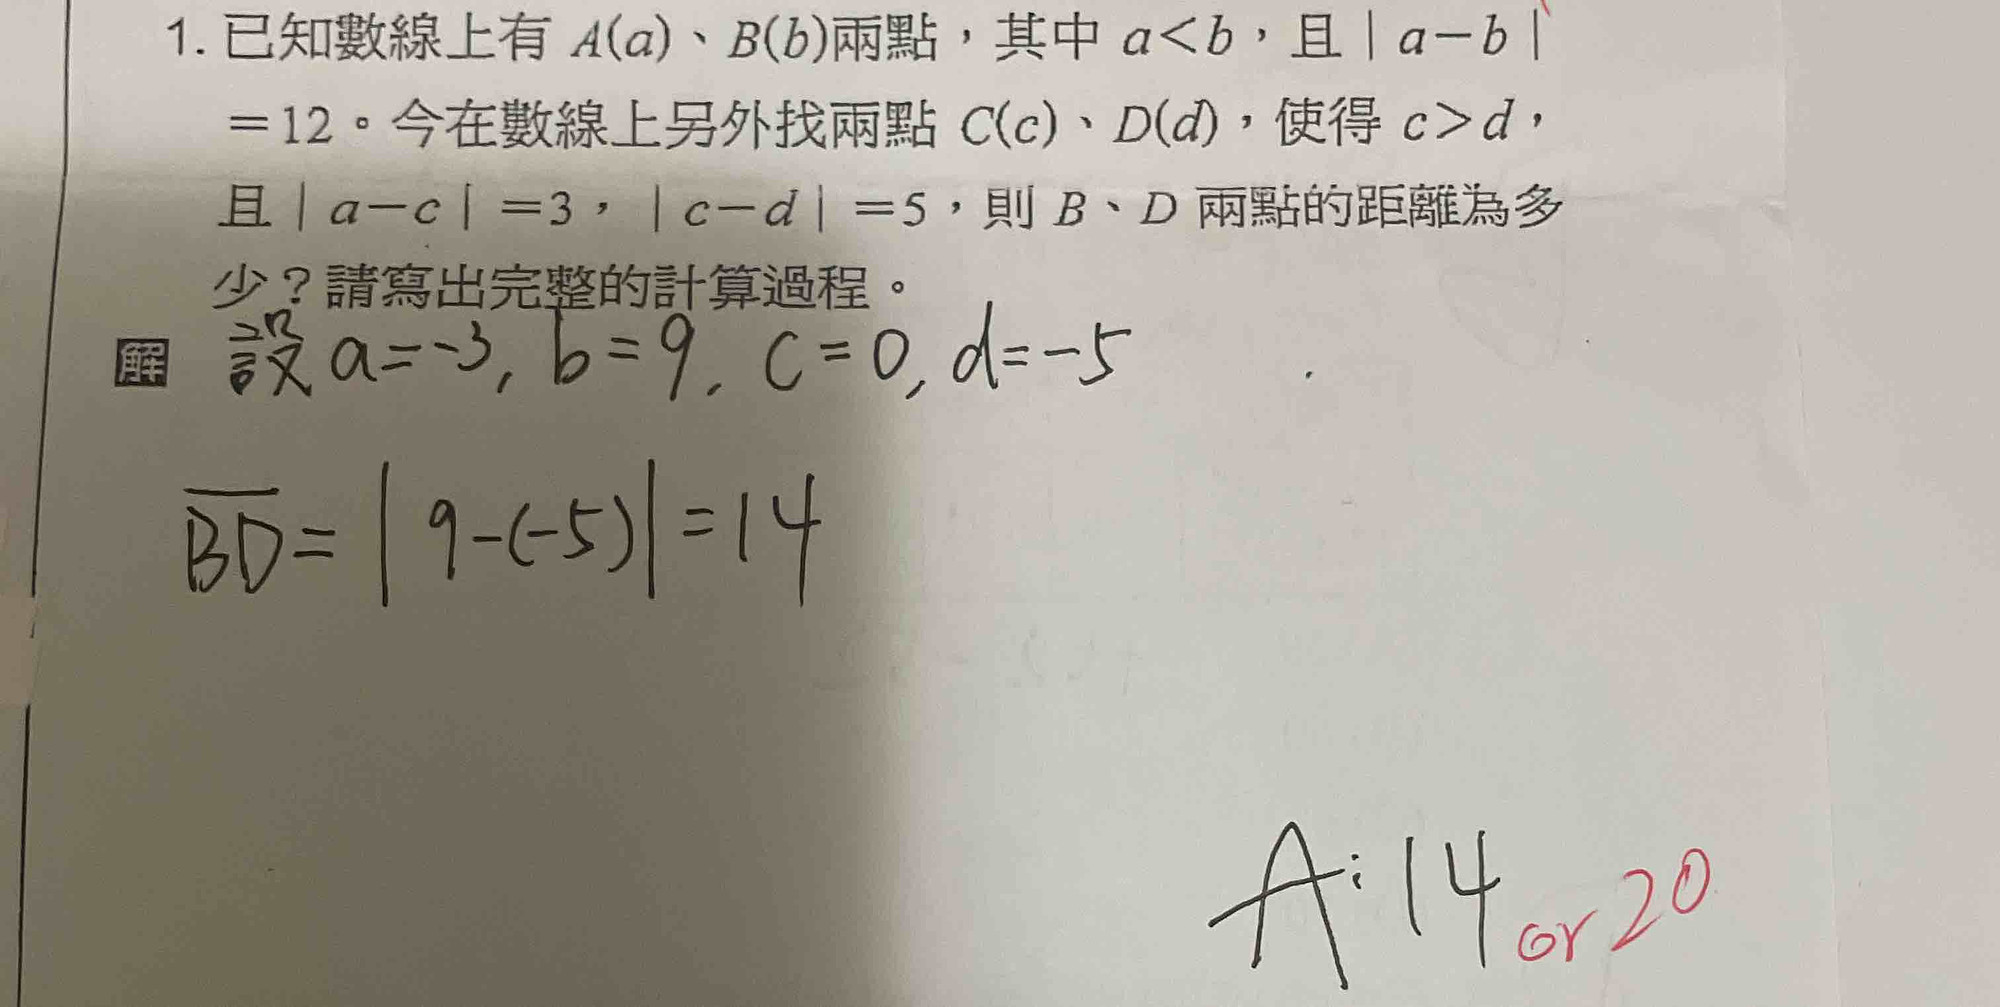 1. 已知數線上有 A(a)、B(b)兩點，其中 a<b，且 | a-b |
=12。今在數線上另外找兩點 C(c)、D(d)，使得 c>d，
且 | a-c | =3，| c-d | =5，則 B、D 兩點的距離為多
少？請寫出完整的計算過程。
解 設 a=-3, b=9, c=0, d=-5
B̅D̅=|9-(-5)|=14
A:14 or 20